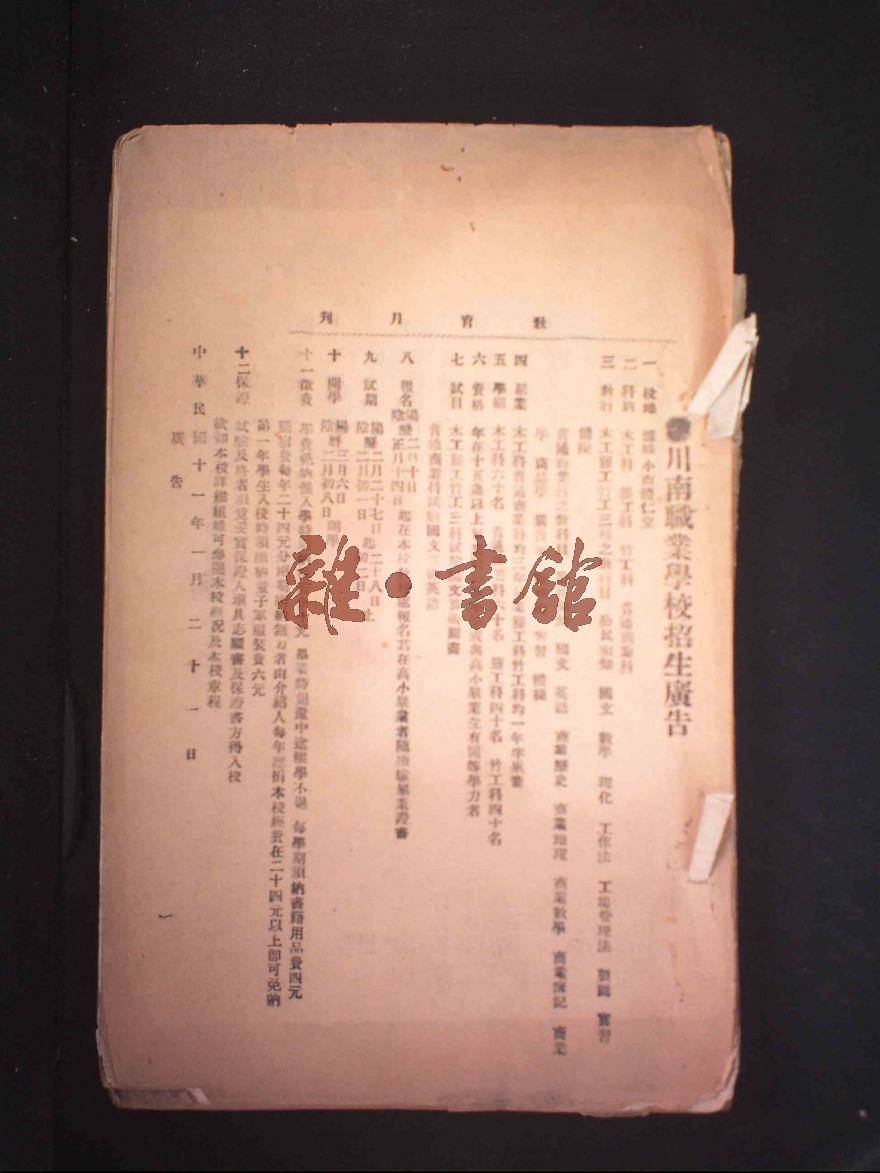 教育月刊
川南職業學校招生廣告
一 校地 小市體仁堂
二 科別 木工科 籐工科 竹工科 普通商業科
三 教科 木工籐工竹工三科之教科目 公民須知 國文 數學 理化 工作法 工場管理法 製圖 實習
體操
普通商業科之教科目 國文 英語 商業歷史 商業地理 商業數學 商業簿記 商業
學 實習 體操
四 畢業 木工科普通商業科均二年畢業籐工科竹工科均一年半畢業
五 學額 木工科六十名 籐工科四十名 竹工科四十名
六 資格 年在十五歲以上 與高小畢業生有同等學力者
七 試目 木工籐工竹工三科試驗國文 圖畫
普通商業科試驗國文 英語
八 報名 陽歷二月十日
陰歷正月十四日 起在本校 報名其在高小畢業者隨繳驗畢業證書
九 試期 陽歷二月二十七日起二十八日止
陰歷二月初一日起初二日
十 開學 陽歷三月六日
陰歷二月初八日 開學
十一徵費 學費免納惟入學時 元 畢業時退還中途輟學不退 每學期須納書籍用品費四元
膳宿費每年二十四元分 者由介紹人每年認捐本校經費在二十四元以上即可免納
第一年學生入校時須繳納童子軍服裝費六元
十二保證 試驗及格者須覓妥實保證人填具志願書及保證書方得入校
欲知本校詳細組織可參閱本校概況及本校章程
中華民國十一年一月二十一日
廣告
雜·書館